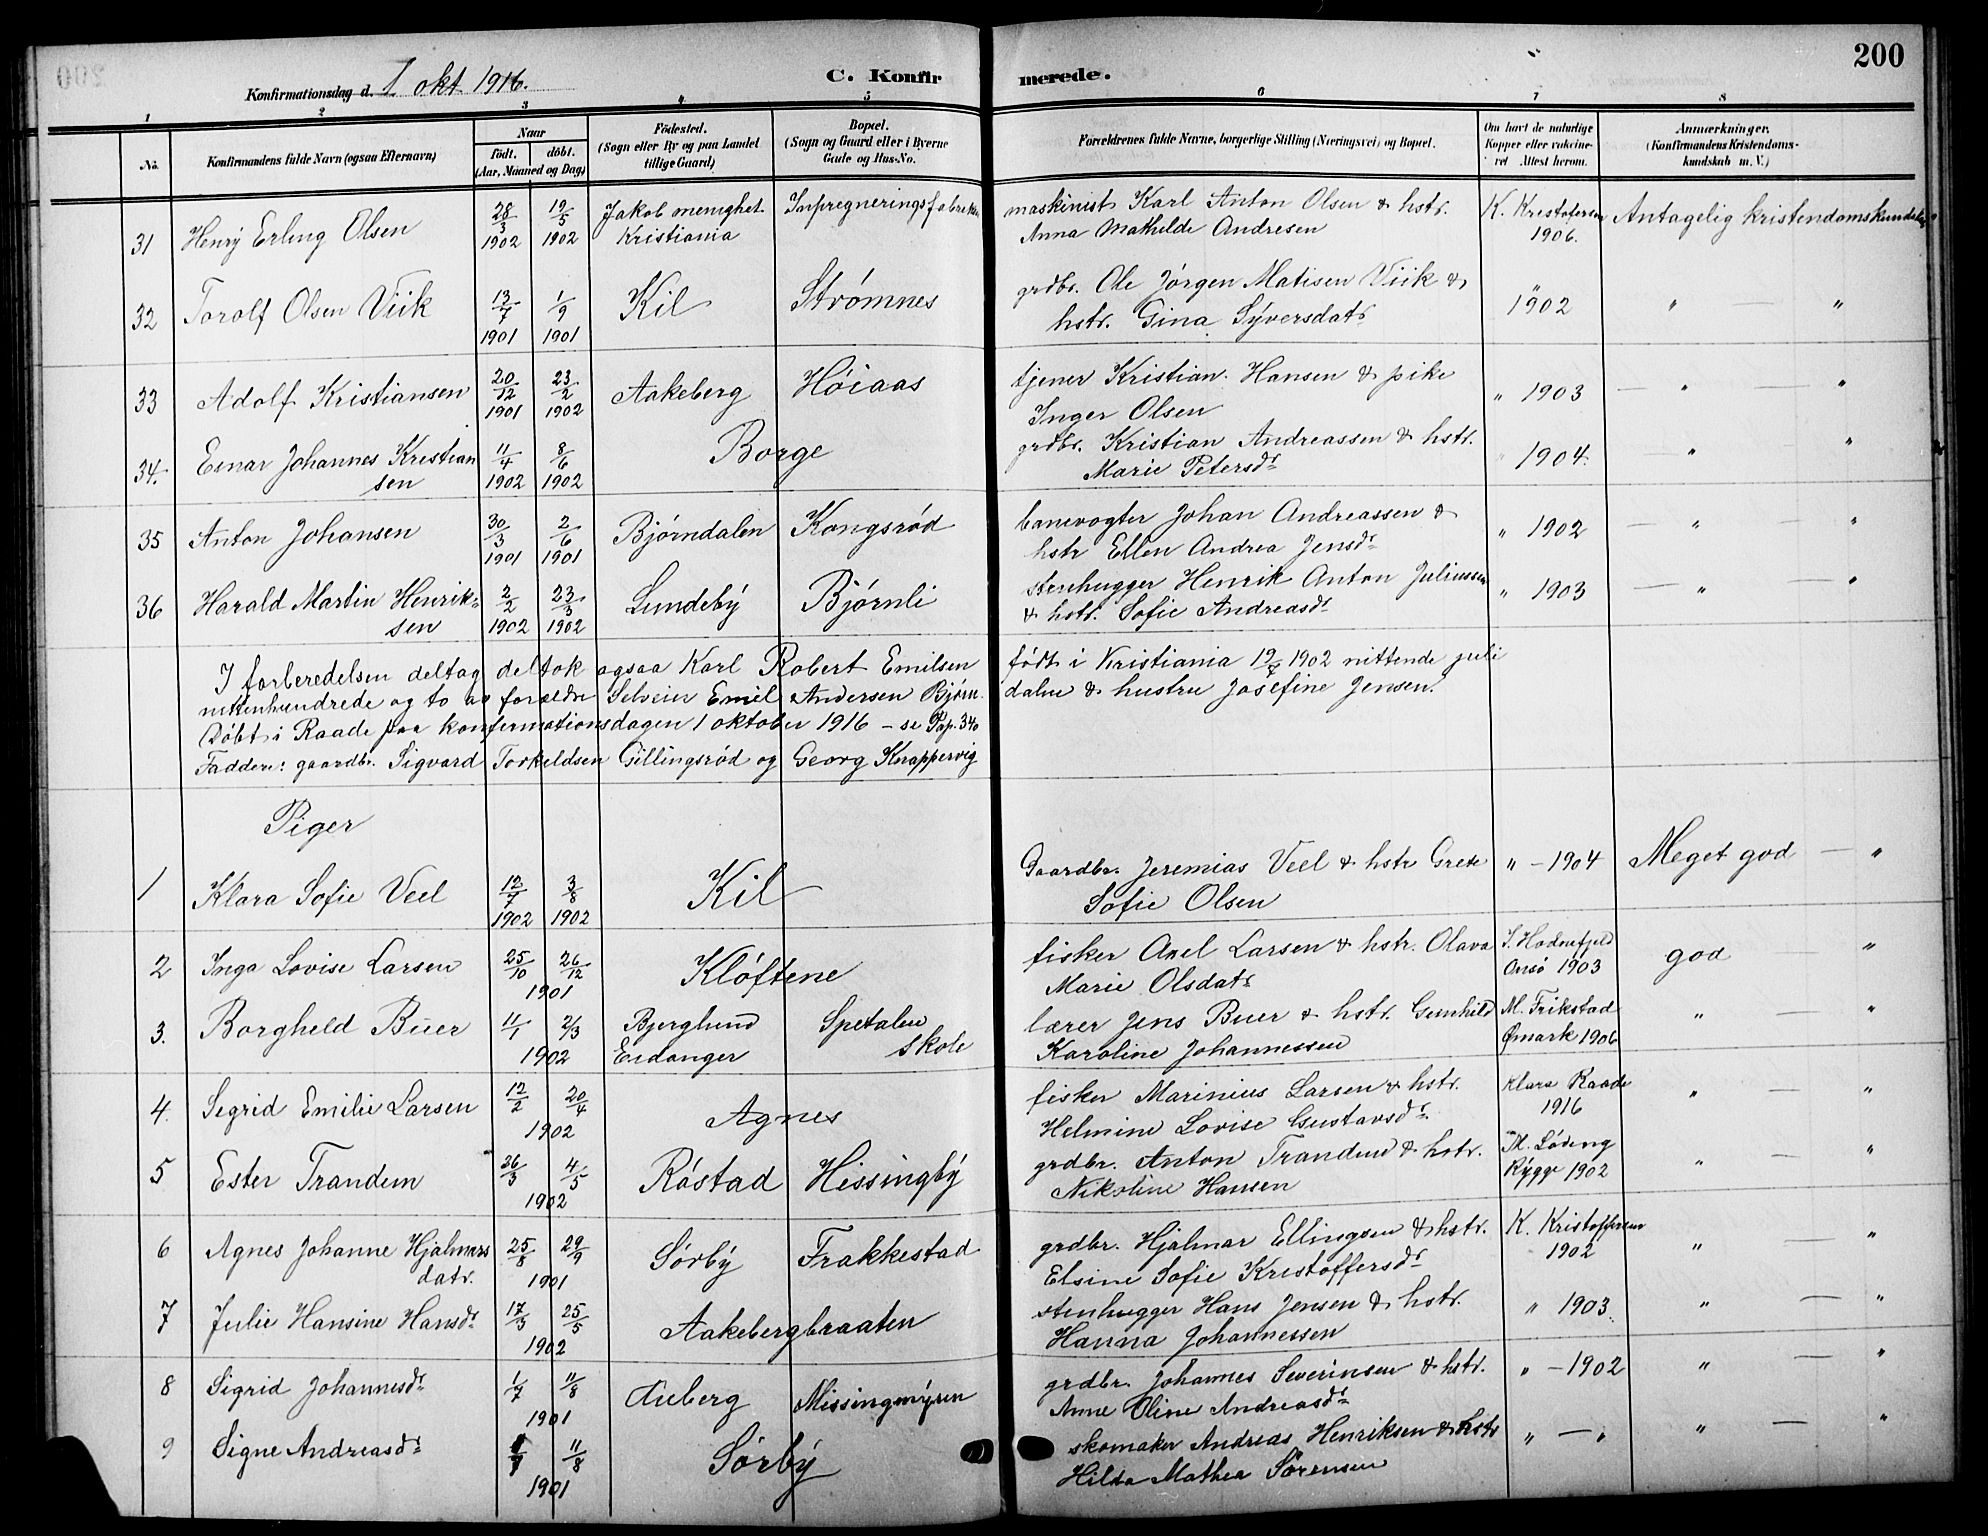 200
Konfirmationsdag d. 1 okt 1916.
C. Konfirmerede.
1 2 3 4 5 6 7 8
No.
Konfirmandens fulde Navn (ogsaa Efternavn)
Naar
födt. döbt.
(Aar, Maaned og Dag)
Födested.
(Sogn eller By og paa Landet
tillige Gaard)
Bopæl.
(Sogn og Gaard eller i Byerne
Gade og Hus-No.
Forældrenes fulde Navne, borgerlige Stilling (Næringsvei) og Bopæl.
Om havt de naturlige
Kopper eller vakcine-
ret Attest herom.
Anmærkninger.
(Konfirmandens Kristendoms-
kundskab m. V.)
31 Henrÿ Erling Olsen 28/3 1902 19/5 1902 Jakob menighet Kristiania Inpregneringsfabriken maskinist Karl Anton Olsen & hstr.
Anna Mathilde Andresen K. Kristofersen 1906. Antagelig kristendomskundskap
32 Torolf Olsen Viik 13/7 1901 1/9 1901 Kil Strømnes grdbr. Ole Jørgen Matisen Viik &
hstr. Gina Sÿversdatr " 1902 " — "
33 Adolf Kristiansen 20/12 1901 23/2 1902 Aakeberg Höiaas tjener Kristian Hansen & pike
Inger Olsen " 1903 — " — "
34. Einar Johannes Kristian
sen 11/4 1902 8/6 1902 Borge grdbr. Kristian Andreassen & hstr.
Marie Petersdr " 1904. — " "
35 Anton Johansen 30/3 1901 2/6 1901 Bjørndalen Kongsrød banevogter Johan Andreassen &
hstr Ellen Andrea Jensdr " 1902 — " — "
36 Harald Martin Henrik-
sen 2/2 1902 23/3 1902 Lundebÿ Bjørnli stenhugger Henrik Anton Juliussen
& hstr. Sofie Andreasdr " 1903 — " — "
I forberedelsen deltag deltok ogsaa Karl Robert Emilsen født i Kristiania 19/7 1902 nittende juli
nittenhundrede og to av forældre Selveier Emil Andersen Bjørn dalen & hustru Josefine Jensen.
Døbt i Raade paa konfirmationsdagen 1 oktober 1916 – se Pag. 340
Faddere: gaardbr. Sigvard Torkeldsen Gillingsrød og Georg Knappervig
Piger
1 Klara Sofie Veel 12/7 1902 3/8 1902 Kil Gaardbr. Jeremias Veel & hstr Grete
Sofie Olsen " – 1904 Meget god — "
2 Inga Lovise Larsen 25/10 26/12 1901 Kløftene fisker Axel Larsen & hstr. Olava
Marie Olsdatr S. Hodnefjeld
Onsø 1903 god — "
3. Borghild Buer 11/1 2/3 1902 Bjerglund
Eidanger Spetalen
skole lærer Jens Buer & hstr. Gunhild
Karoline Johannessen M. Frikstad
Ømark 1906 " — "
4. Sigrid Emilie Larsen 12/2 20/4 1902 Agnes fisker Marinius Larsen & hstr.
Helmine Lovise Gustavsdr Klara Raade
1916 " — "
5 Ester Trandem 26/3 4/5 1902 Röstad Hissingbÿ grdbr. Anton Trandem & hstr.
Nikoline Hansen M. Løding
Rÿgge 1902 " — "
6 Agnes Johanne Hjalmars
datr. 25/8 29/9 1901 Sörbÿ Frakkestad grdbr. Hjalmar Ellingsen & hstr.
Elsine Sofie Kristoffersdr K. Kristoffersen
1902 " — "
7 Julie Hansine Hansdr 17/3 25/5 1902 Aakebergbraaten stenhugger Hans Jensen & hstr.
Hanna Johannessen " 1903. " — "
8 Sigrid Johannesdr 1/7 11/8 1901 Auberg Missingmÿren grdbr. Johannes Severinsen & hstr.
Anne Oline Andreasdr " – 1902 " — "
9 Signe Andreasdr 11/8 1901 Sörbÿ skomaker Andreas Henriksen & hstr
Hilda Mathea Sørensen " — " " — "